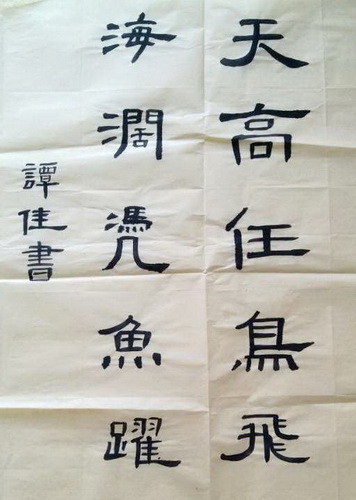 天高任鳥飛
海濶凴魚躍
譚佳書